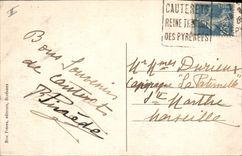 CAUTERETS
REINE DES
DES PYRÉNÉES
Bons Souvenirs
de Cauterets
Mr Mmes Durieux
Campagne La Paternelle
Ste Marthe
Marseille